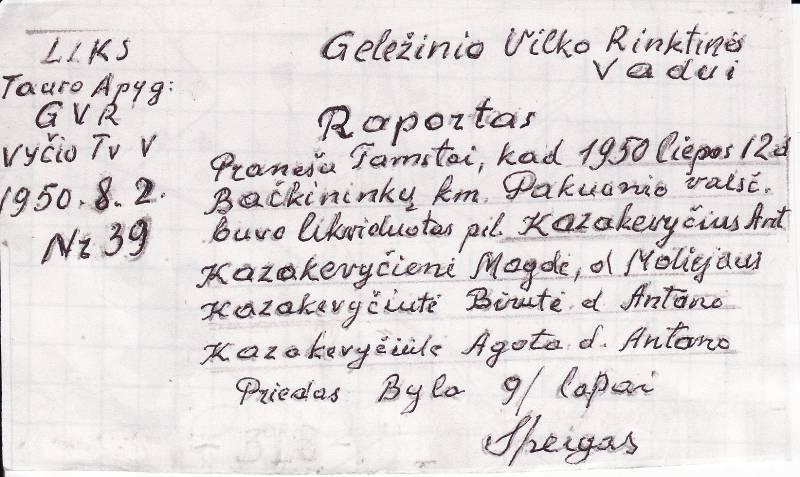 LLKS
Tauro Apyg:
GVR
Vyčio Tv V
1950.8.2.
Nr 39
Geležinio Vilko Rinktinės
Vadui
Raportas
Pranešu Tamstai, kad 1950 liepos 12 d
Bačkininkų km. Pakuonio valsč.
buvo likviduotas pil. Kazakevyčius Ant
Kazakevyčienė Magdė, d Motiejaus
Kazakevyčiutė Birutė d Antano
Kazakevyčiutė Agota d. Antano
Priedas Byla 9/ lapai